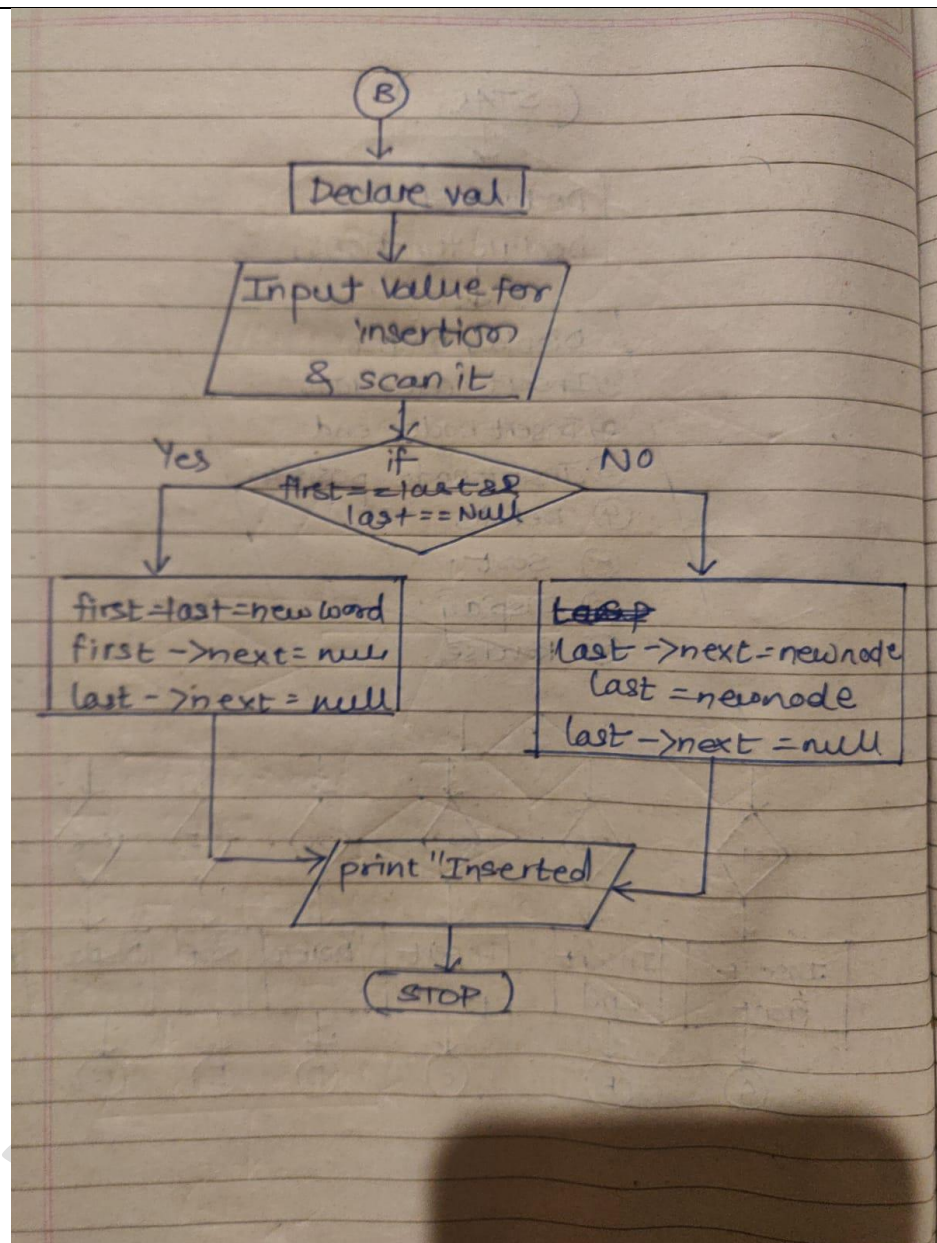 B
Declare val
Input value for
insertion
& scan it
Yes
if
NO
first==last&&
last==Null
first=last=newword
first->next=null
last->next=null
last->next=newnode
last=newnode
last->next=null
print "Inserted
STOP